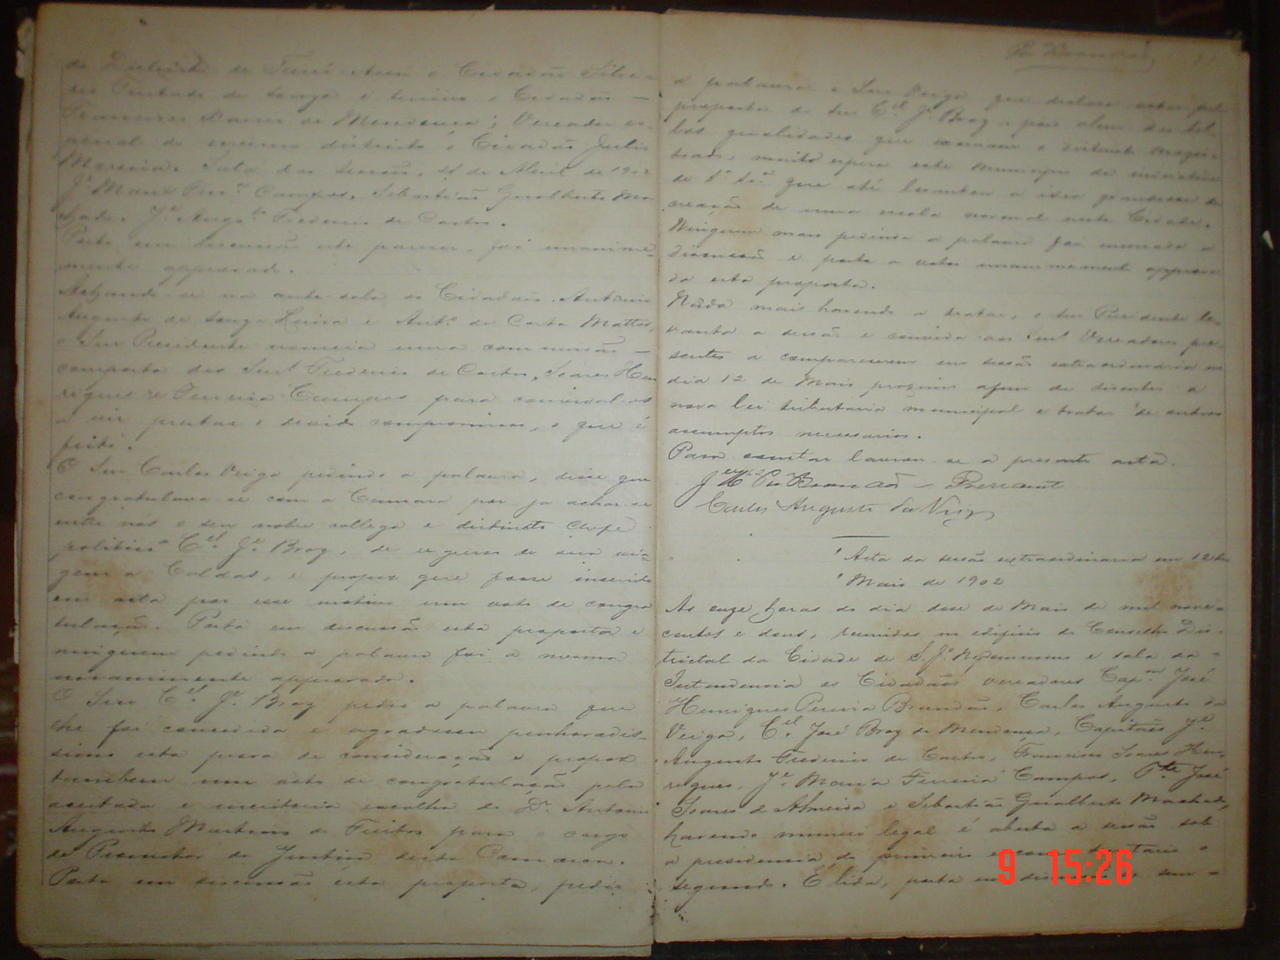 do Districto de Cidadão
Furtado de Souza e Cidadão
Francisco de Mendonça; Vereador es-
pecial do mesmo districto o Cidadão Julio
Moreira. Sala das sessões, de Abril de 1902
Jé Maria Ferra Campos, Sebastião Gualberto Ma-
chado. Je Augto Frederico de Castro.
Posto em discussão este parecer, foi unanime-
mente approvado.
Achando-se na ante-sala os Cidadãos Antonio
Augusto de Souza Lima e Anto da Costa Mattos,
o Snr Presidente nomeia uma commissão
composta dos Snrs Frederico de Castro, Soares Hen-
riques e Ferreira Campos para convidal-os
a vir prestar o devido compromisso, o que é
feito.
O Snr Carlos Veiga, pedindo a palavra, disse que
congratulava-se com a Camara por ja achar-se
entre nós o seu nobre collega e distincto chefe
politico Cel Je Braz, de regresso de sua via-
gem a Caldas, e propoz que fosse inserido
em acta por esse motivo um voto de congra-
tulação. Posta em discussão esta proposta e
ninguem pedindo a palavra foi a mesma
unanimemente approvada.
O Snr Cel Je Braz pedio a palavra que
lhe foi concedida e agradeceu penhoradis-
simo esta prova de consideração e propoz
tambem um voto de congratulação pela
acertada e meritoria escolha do Dr Antonio
Augusto Martins de Freitas para o cargo
de Promotor de Justiça desta Comarca.
Posta em discussão esta proposta, pedio
a palavra o Snr Veiga que declara estar pela
proposta do Snr Cel Je Braz e por alem das bel-
las qualidades que exornam o distincto
muito espera este Municipio da iniciativa
de S. Sa que até levantou a ideia grandiosa da
creação de uma escola normal nesta Cidade.
Ninguem mais pedindo a palavra foi encerrada a
discussão e posta a votos unanimemente approva-
da esta proposta.
Nada mais havendo a tratar, o Snr Presidente le-
vanta a sessão e convida aos Snrs Vereadores pre-
sentes a comparecerem em sessão extraordinaria no
dia 12 de Maio proximo afim de discutir a
nova lei tributaria municipal e tratar de outros
assumptos necessarios.
Para constar lavrou-se a presente acta.
Je Hes Pra Brandão - Presidente
Carlos Augusto da Veiga
Acta da sessão extraordinaria em 12 de
Maio de 1902
As onze horas do dia doze de Maio de mil nove-
centos e dous, reunidos no edificio do Conselho Dis-
trictal da Cidade de S. Jo Nepomuceno e sala da
Intendencia os Cidadãos vereadores Capm José
Henriques Pereira Brandão, Carlos Augusto da
Veiga, Cel José Braz de Mendonça, Capitães Je
Augusto Frederico de Castro, Francisco Soares Hen-
riques, Je Maria Ferreira Campos, José
Soares de Almeida e Sebastião Gualberto Machado,
havendo numero legal é aberta a sessão sob
a presidencia do primeiro secretario o
segundo. É lida, posta em discussão e sem
9 15:26